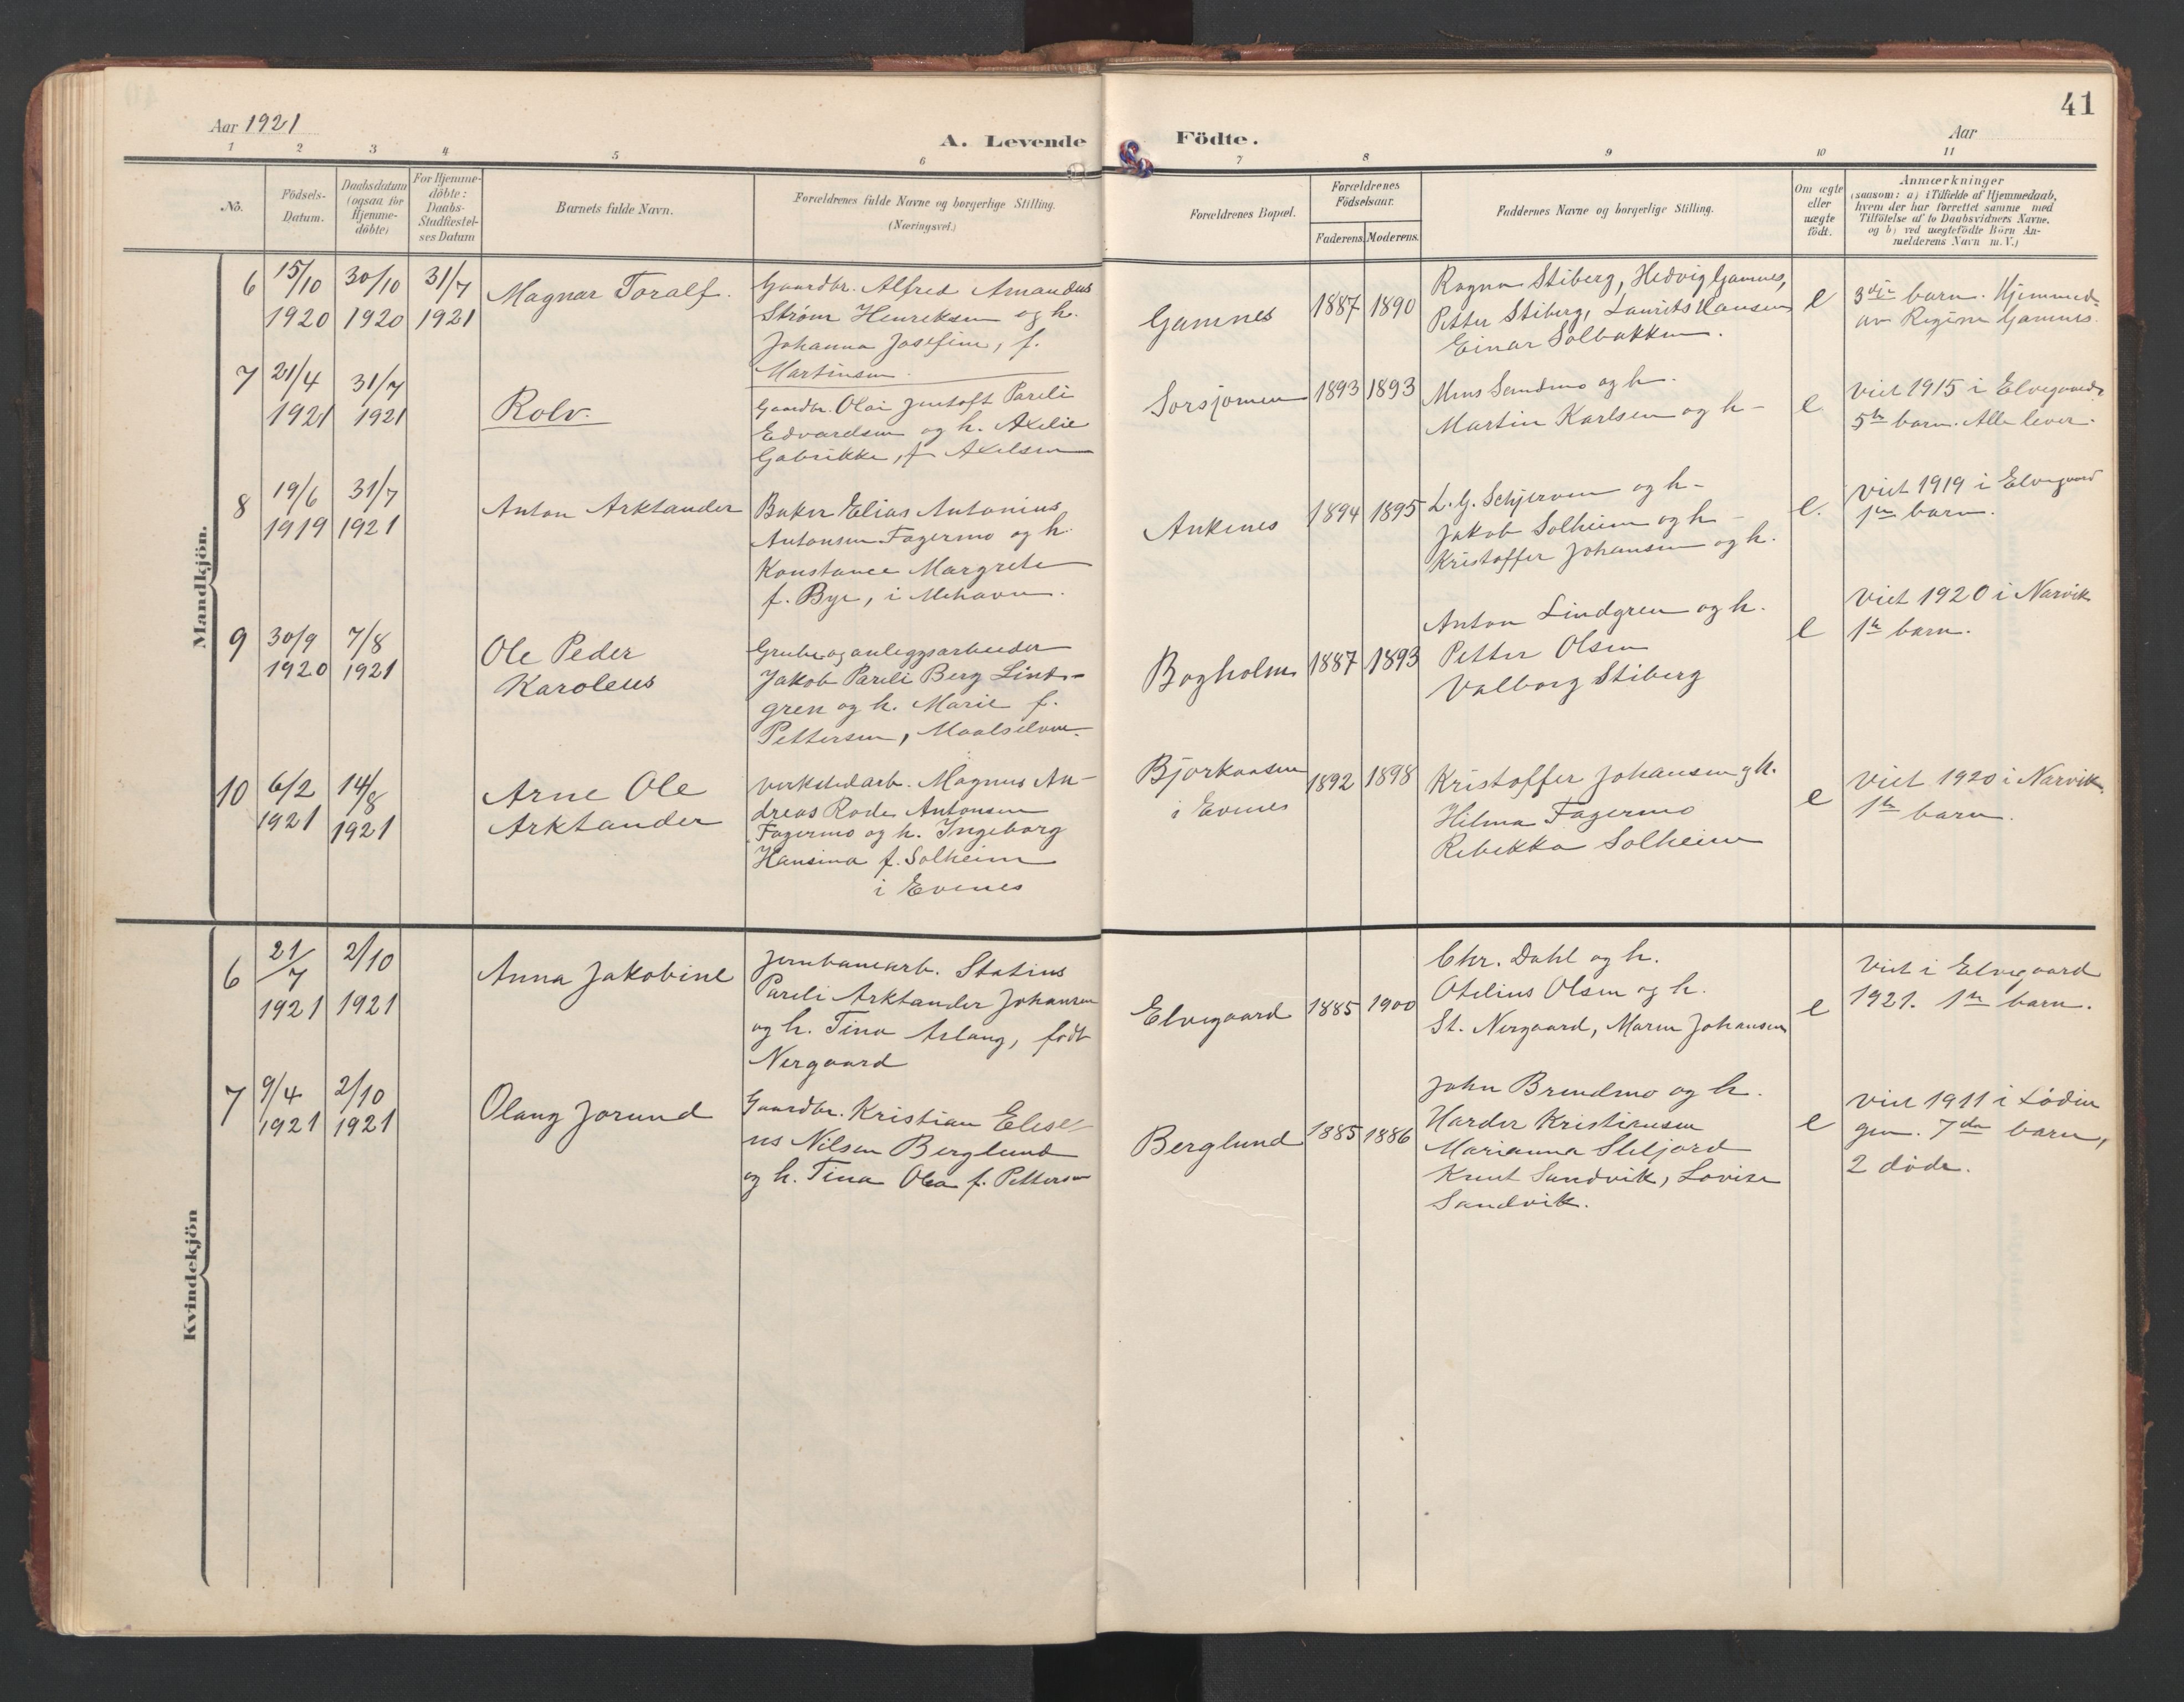 41
Aar 1921
A. Levende Födte.
Aar
1 2 3 4 5 6 7 8 9 10 11
No.
Födsels-
Datum.
Daabsdatum
(ogsaa for
Hjemme-
döbte)
For Hjemme-
döbte:
Daabs-
Stadfæstel-
ses Datum
Barnets fulde Navn.
Forældrenes fulde Navne og borgerlige Stilling.
(Næringsvei.)
Forældrenes Bopæl.
Forældrenes
Födselsaar.
Faderens. Moderens.
Faddernes Navne og borgerlige Stilling.
Om ægte
eller
uægte
födt.
Anmærkninger
(saasom: a) i Tilfælde af Hjemmedaab,
hvem der har forrettet samme med
Tilföielse af to Daabsvidners Navne,
og b) ved uægtefödte Börn An-
melderens Navn m. V.)
Mandkjön.
6
15/10
1920
30/10
1920
31/7
1921
Magnar Toralf.
Gaardbr. Alfred Amandus
Strøm Henriksen og h.
Johanna Josefine, f.
Martinsen.
Gamnes
1887
1890
Ragna Stiberg, Hedvig Gamnes,
Petter Stiberg, Laurits Hansen
Einar Solbakken.
e
3dje barn. Hjemmed.
av Regine Gamnes.
7
21/4
1921
31/7
1921
Rolv.
Gaardbr. Olai Jentoft Pareli
Edvardsen og h. Axelie
Gabrikke, f. Axelsen
Sørsjomen
1893
1893
Mons Sandmo og h.
Martin Karlsen og h-
e
Viet 1915 i Elvegaard.
5te barn. Alle lever.
8
19/6
1919
31/7
1921
Anton Arktander
Baker Elias Antonius
Antonsen Fagermo og h.
Konstance Margrete
f. Bye, i Mehavn.
Ankenes
1894
1895
L. G. Schjerven og h-
Jakob Solheim og h-
Kristoffer Johansen og h.
e.
Viet 1919 i Elvegaard
1ste barn.
9
30/9
1920
7/8
1921
Ole Peder
Karoleus
Grube og anleggsarbeider
Jakob Pareli Berg Lind-
gren og h. Marie f.
Pettersen, Maalselven.
Bogholm
1887
1893
Anton Lindgren og h.
Petter Olsen
Valborg Stiberg
e
Viet 1920 i Narvik
1te barn.
10
6/2
1921
14/8
1921
Arne Ole
Arktander
Verkstedarb. Magnus An-
dreas Rode Antonsen
Fagermo og h. Ingeborg
Hansina f. Solheim
i Evenes
Bjørkaasen
i Evenes
1892
1898
Kristoffer Johansen og h.
Hilma Fagermo
Rebekka Solheim
e
Viet 1920 i Narvik.
1te barn.
Kvindekjön
6
21/7
1921
2/10
1921
Anna Jakobine
Jernbanearb. Statius
Pareli Arktander Johansen
og h. Tina Aslaug, født
Nergaard
Elvegaard
1885
1900
Chr. Dahl og h.
Otelius Olsen og h.
St. Nergaard, Maren Johansen
e
Viet i Elvegaard
1921. 1te barn.
7
9/4
1921
2/10
1921
Olaug Jorund
Gaardbr. Kristian Elise-
us Nilsen Berglund
og h. Tina Olea f. Pettersen
Berglund
1885
1886
John Brendmo og h.
Harder Kristiansen
Marianna Skeljord
Knut Sandvik, Lovise
Sandvik.
e
Viet 1911 i Lødin
gen. 7de barn,
2 døde.